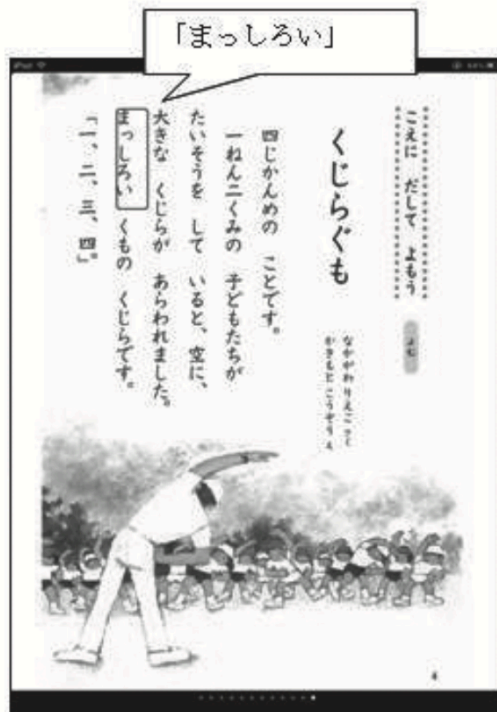 「まっしろい」
iPad
こえに だして よもう
よむ
くじらぐも
なかがわ りえこ さく
かきもと こうぞう え
四じかんめの ことです。
一ねん二くみの 子どもたちが
たいそうを して いると、空に、
大きな くじらが あらわれました。
まっしろい くもの くじらです。
「一、二、三、四。」
4